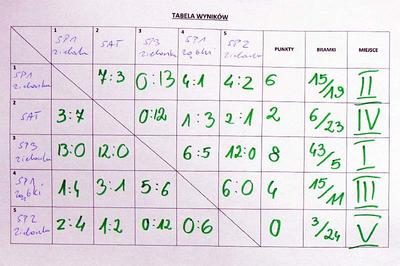 TABELA WYNIKÓW
1 SP1 zielonka 2 SAT 3 SP3 zielonka 4 SP1 ząbki 5 SP2 zielonka PUNKTY BRAMKI MIEJSCE
1 SP1 zielonka 7:3 0:13 4:1 4:2 6 15/19 II
2 SAT 3:7 0:12 1:3 2:1 2 6/23 IV
3 SP3 zielonka 13:0 12:0 6:5 12:0 8 43/5 I
4 SP1 ząbki 1:4 3:1 5:6 6:0 4 15/11 III
5 SP2 zielonka 2:4 1:2 0:12 0:6 0 3/24 V